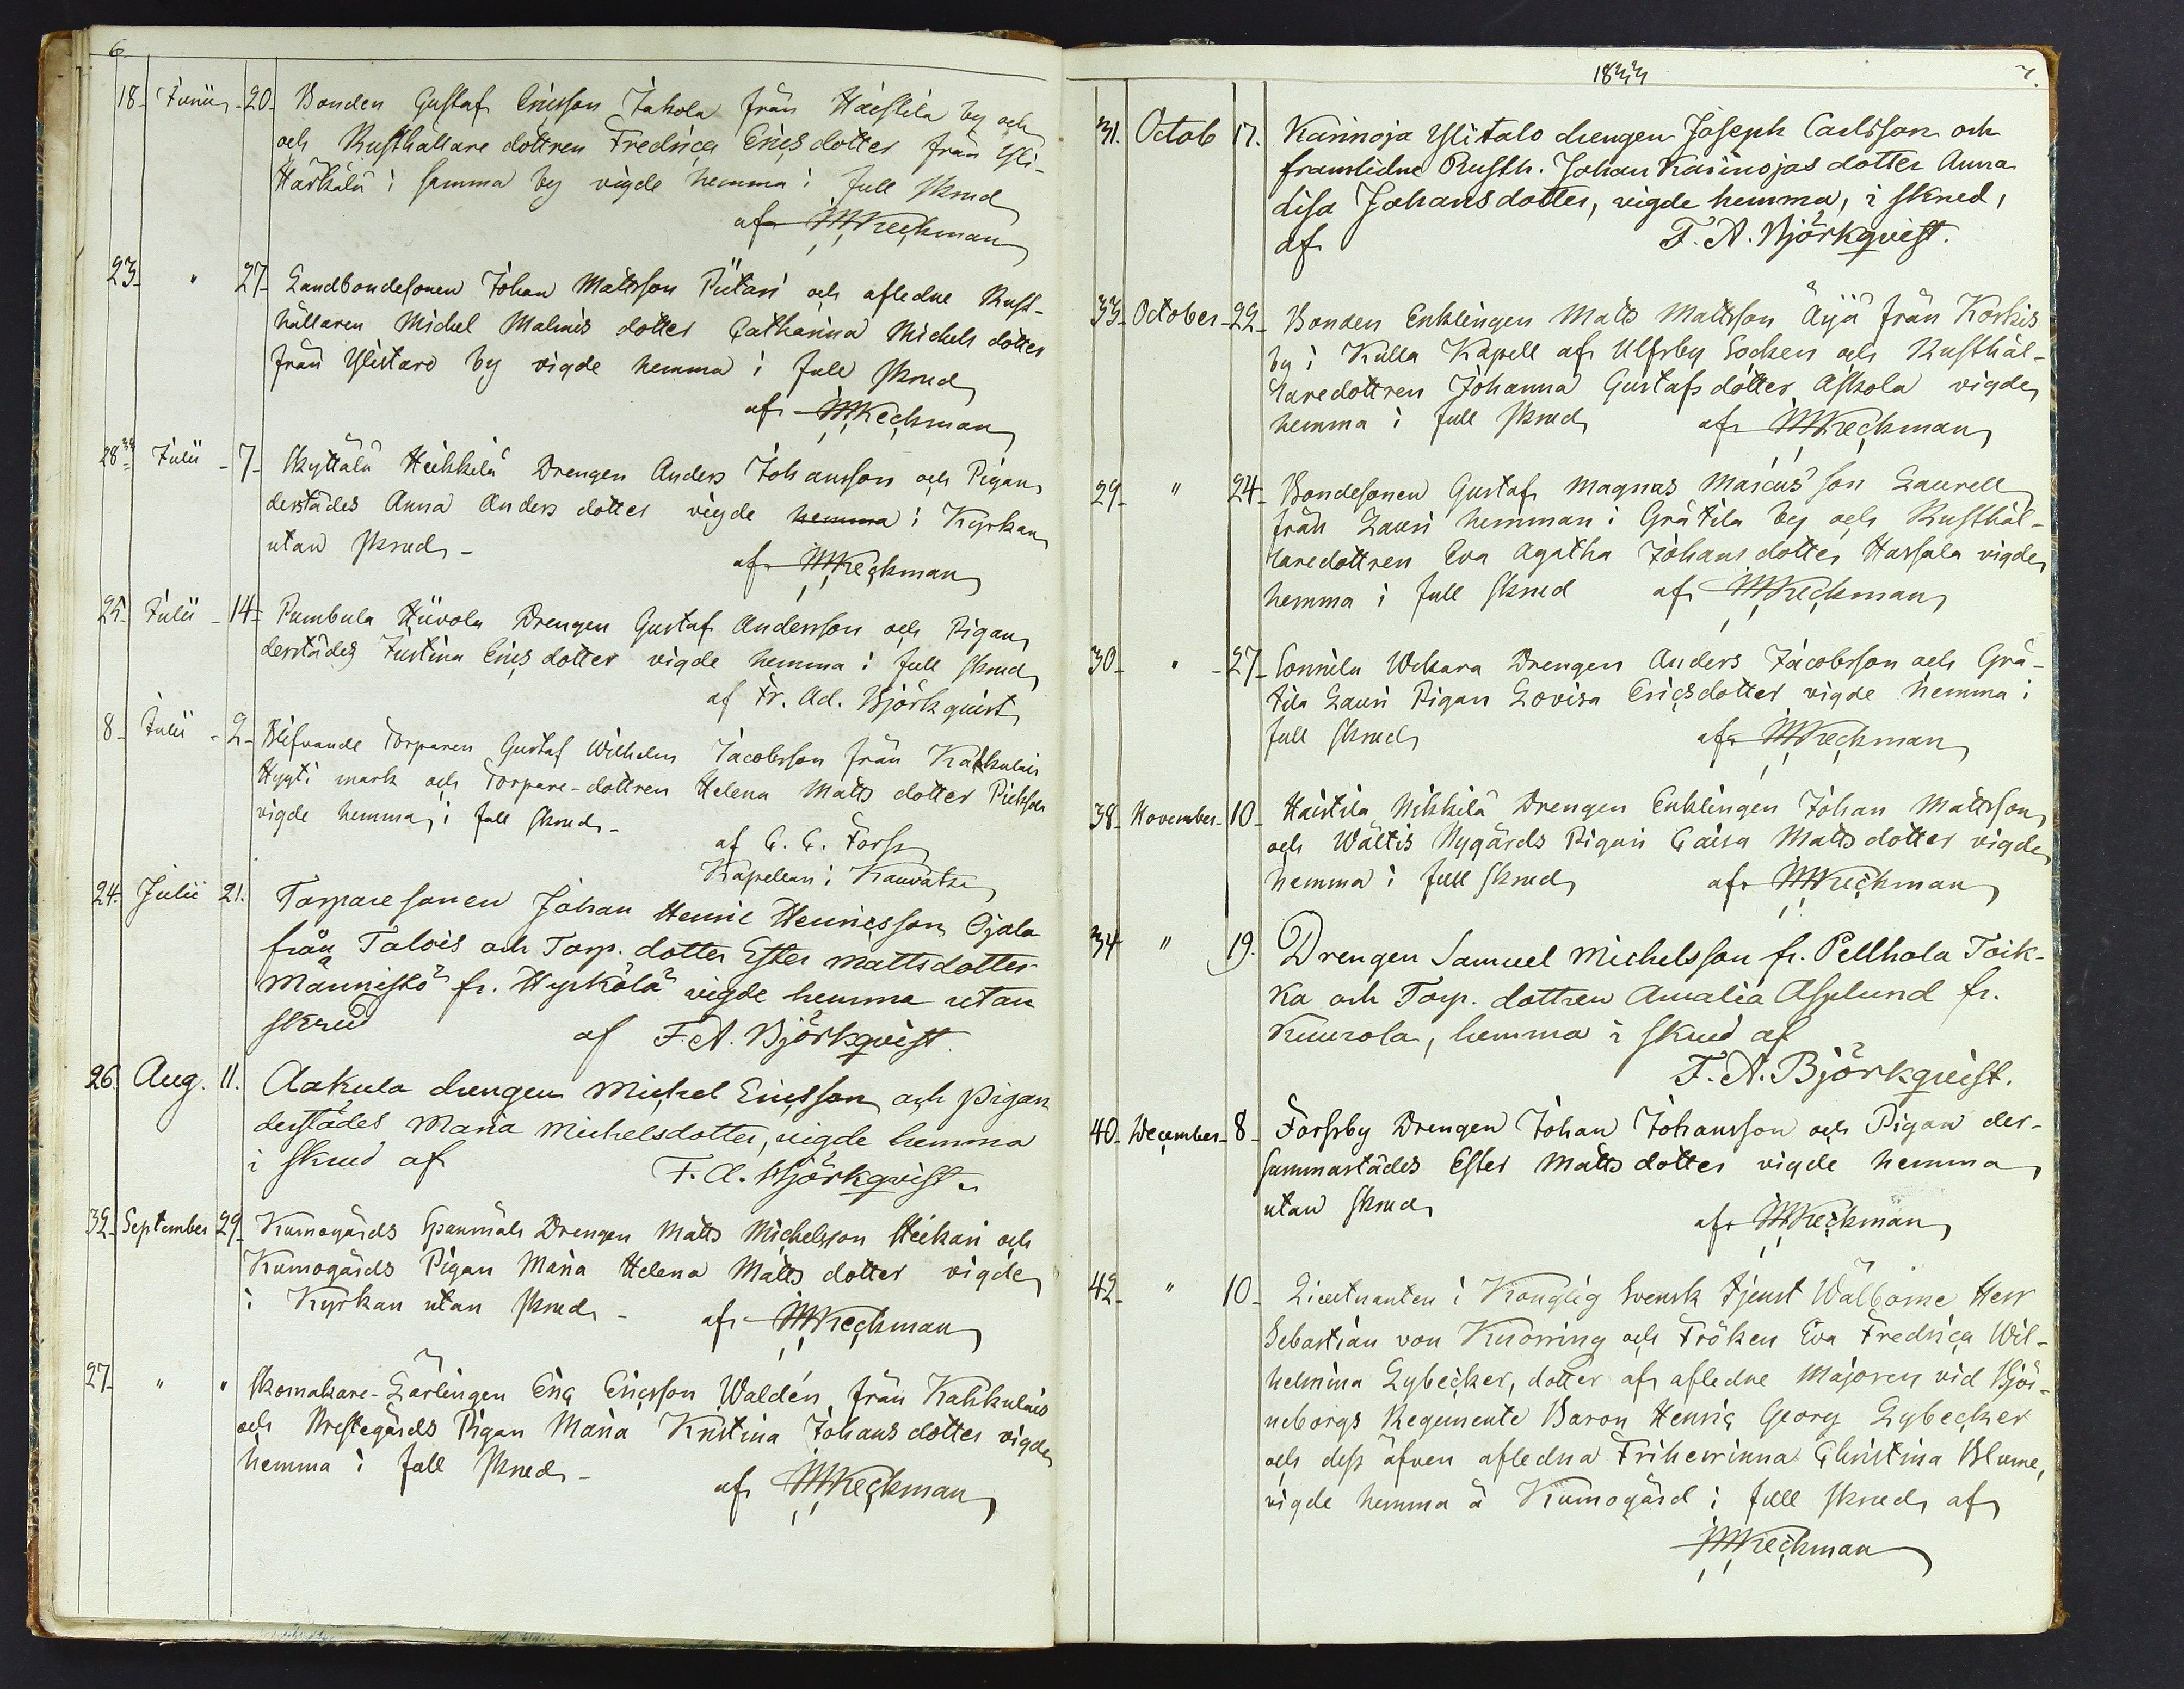 6
18 Junii 20 Bonden Gustaf Ericsson Jakola från Haistila by och
och Rusthållare dottren Fredrica Erics dotter från Yli-
Härkälä i samma by vigde hemma i full skrud
af M Keckman
23 " 27 Landbondesonen Johan Mattsson Piitari och afledne Rust-
hållaren Michel Malmis dotter Catharina Michels dotter
från Ylistaro by vigde hemma i full skrud
af M Keckman
28 Julii 7 Kyttälä Heikkilä Drengen Anders Johansson och Pigan
derstädes Anna Anders dotter vigde hemma i Kyrkan
utan skrud
af M Keckman
25 Julii 14 Pumbula Hiivola Drengen Gustaf Andersson och Pigan
derstädes Justina Erics dotter vigde hemma i full skrud
af Fr. Ad. Björkquist
8 Julii 2 Blifvande Torparen Gustaf Wilhelm Jacobsson från Kakkulais
Hyyti mark och Torpare-dottren Helena Matts dotter
vigde hemma i full skrud
af C. G. Forss
Kapellan i Kauvatsa
24. Julii 21. Torparesonen Johan Henric Henricsson Ojala
från Talois och Torp. dotter Ester Mattsdotter
Männistö fr. Hyrkölä vigde hemma utan
skrud af F. A. Björkqvist.
26. Aug. 11. Aakula drengen Michel Ericsson och pigan
derstädes Maria Michelsdotter, vigde hemma
i skrud af F. A. Björkqvist.
32 September 29 Kumogårds Spanmåls Drengen Matts Michelsson Heikari och
Kumogårds Pigan Maria Helena Matts dotter vigde
i Kyrkan utan skrud af M Keckman
27 " " Skomakare-Lärlingen Eric Ericsson Waldén från Kakkulais
och Prestegårds Pigan Maria Kristina Johans dotter vigde
hemma i full skrud
af M Keckman
1833 7.
31. Octob 17. Karinoja Ylitalo drengen Joseph Carlsson och
framlidne Rusth. Johan Karinojas dotter Anna
Lisa Johansdotter, vigde hemma, i skrud,
af F. A. Björkqvist.
33 October 22 Bonden Enklingen Matts Mattsson Äijä från Koskis
by i Kulla Kapell af Ulfsby Socken och Rusthål-
laredottren Johanna Gustafs dotter Askola vigde
hemma i full skrud af M Keckman
29 " 24 Bondesonen Gustaf Magnus Marcus son Laurell
från Lauri hemman i Gråtila by och Rusthål-
laredottren Eva Agatha Johans dotter Hassala vigde
hemma i full skrud af M Keckman
30 " 27 Sonnila Uckara Drengen Anders Jacobsson och Grå-
tila Lauri Pigan Lovisa Ericsdotter vigde hemma i
full skrud af M Keckman
38 November 10 Haistila Nikkilä Drengen Enklingen Johan Mattsson
och Wältis Nygårds Pigan Caisa Matts dotter vigde
hemma i full skrud af M Keckman
34 " 19. Drengen Samuel Michelsson fr. Pellhola Toik-
ka och Torp. dottren Amalia Asplund fr.
Kuurola, hemma i skrud af
F. A. Björkqvist.
40 December 8 Forssby Drengen Johan Johansson och Pigan der-
sammastädes Ester Matts dotter vigde hemma
utan skrud
af M Keckman
42 " 10 Lieutnanten i Konglig Svensk tjenst Wälborne Herr
Sebastian von Knorring och Fröken Eva Fredrica Wil-
helmina Lybecker, dotter af afledne Majoren vid Björ-
neborgs Regemente Baron Henric Georg Lybecker
och dess äfven afledna Friherrinna Christina Blume,
vigde hemma å Kumogård i full skrud af
M Keckman